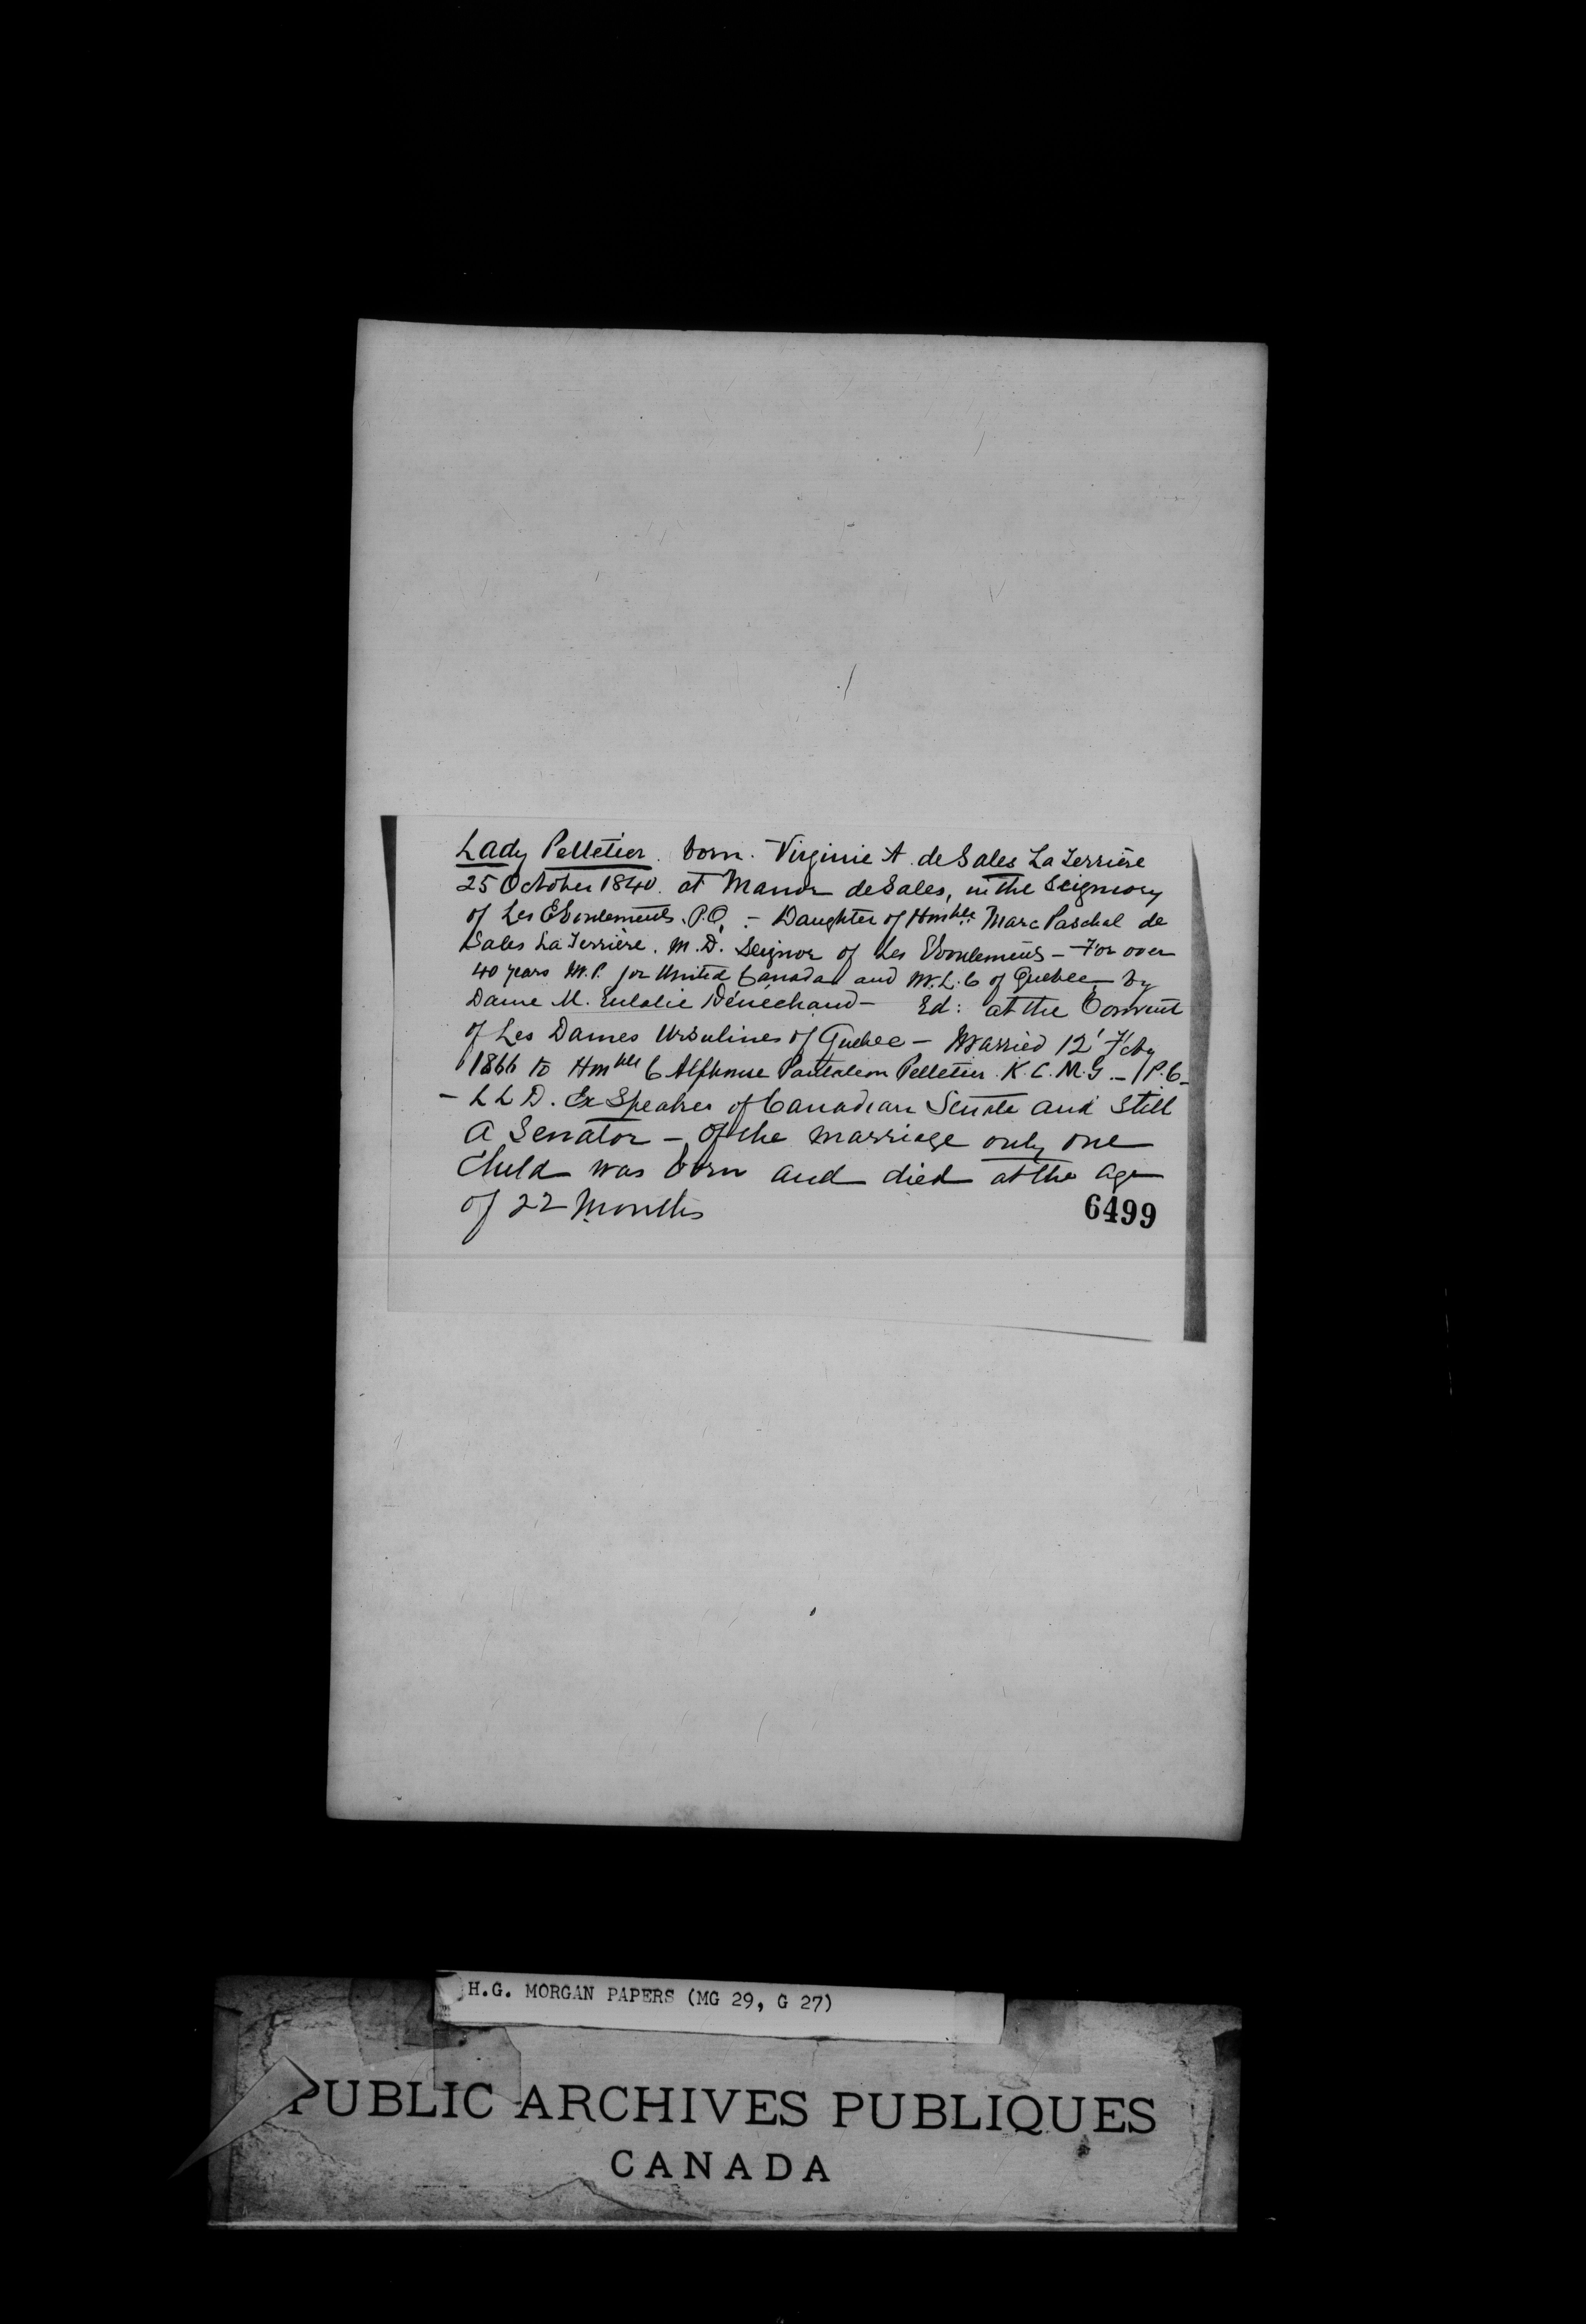 Lady Pelletier. born. Virginie A. de Sales La Terrière
25 October 1840. at Manor de Sales, in the Seignory
of Les Eboulements. P.Q. :- Daughter of Honble. Marc Paschal de
Sales La Terrière. M.D. Seignor of Les Eboulements - For over
40 years M.P. for United Canada and M.L.C of Quebec by
Dame M. Eulalie Dénéchaud - Ed: at the Convent
of Les Dames Ursulines of Quebec - Married 12' Feby
1866 to Honble C Alfhonse Pantaleon Pelletier. K.C.M.G - P.C -
- L L D. Ex Speaker of Canadian Senate and still
a Senator - Of the marriage only one
Child was born and died at the age
of 22 months
6499
H.G. MORGAN PAPERS (MG 29, G 27)
PUBLIC ARCHIVES PUBLIQUES
CANADA